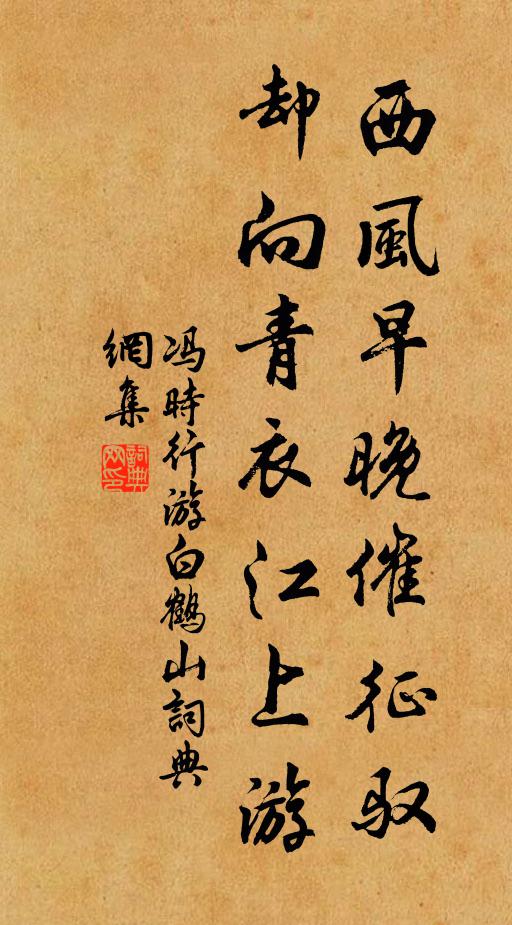 西風早晚催征驭
却向青衣江上游
冯時行游白鶴山詞典
網集
詞典
网印